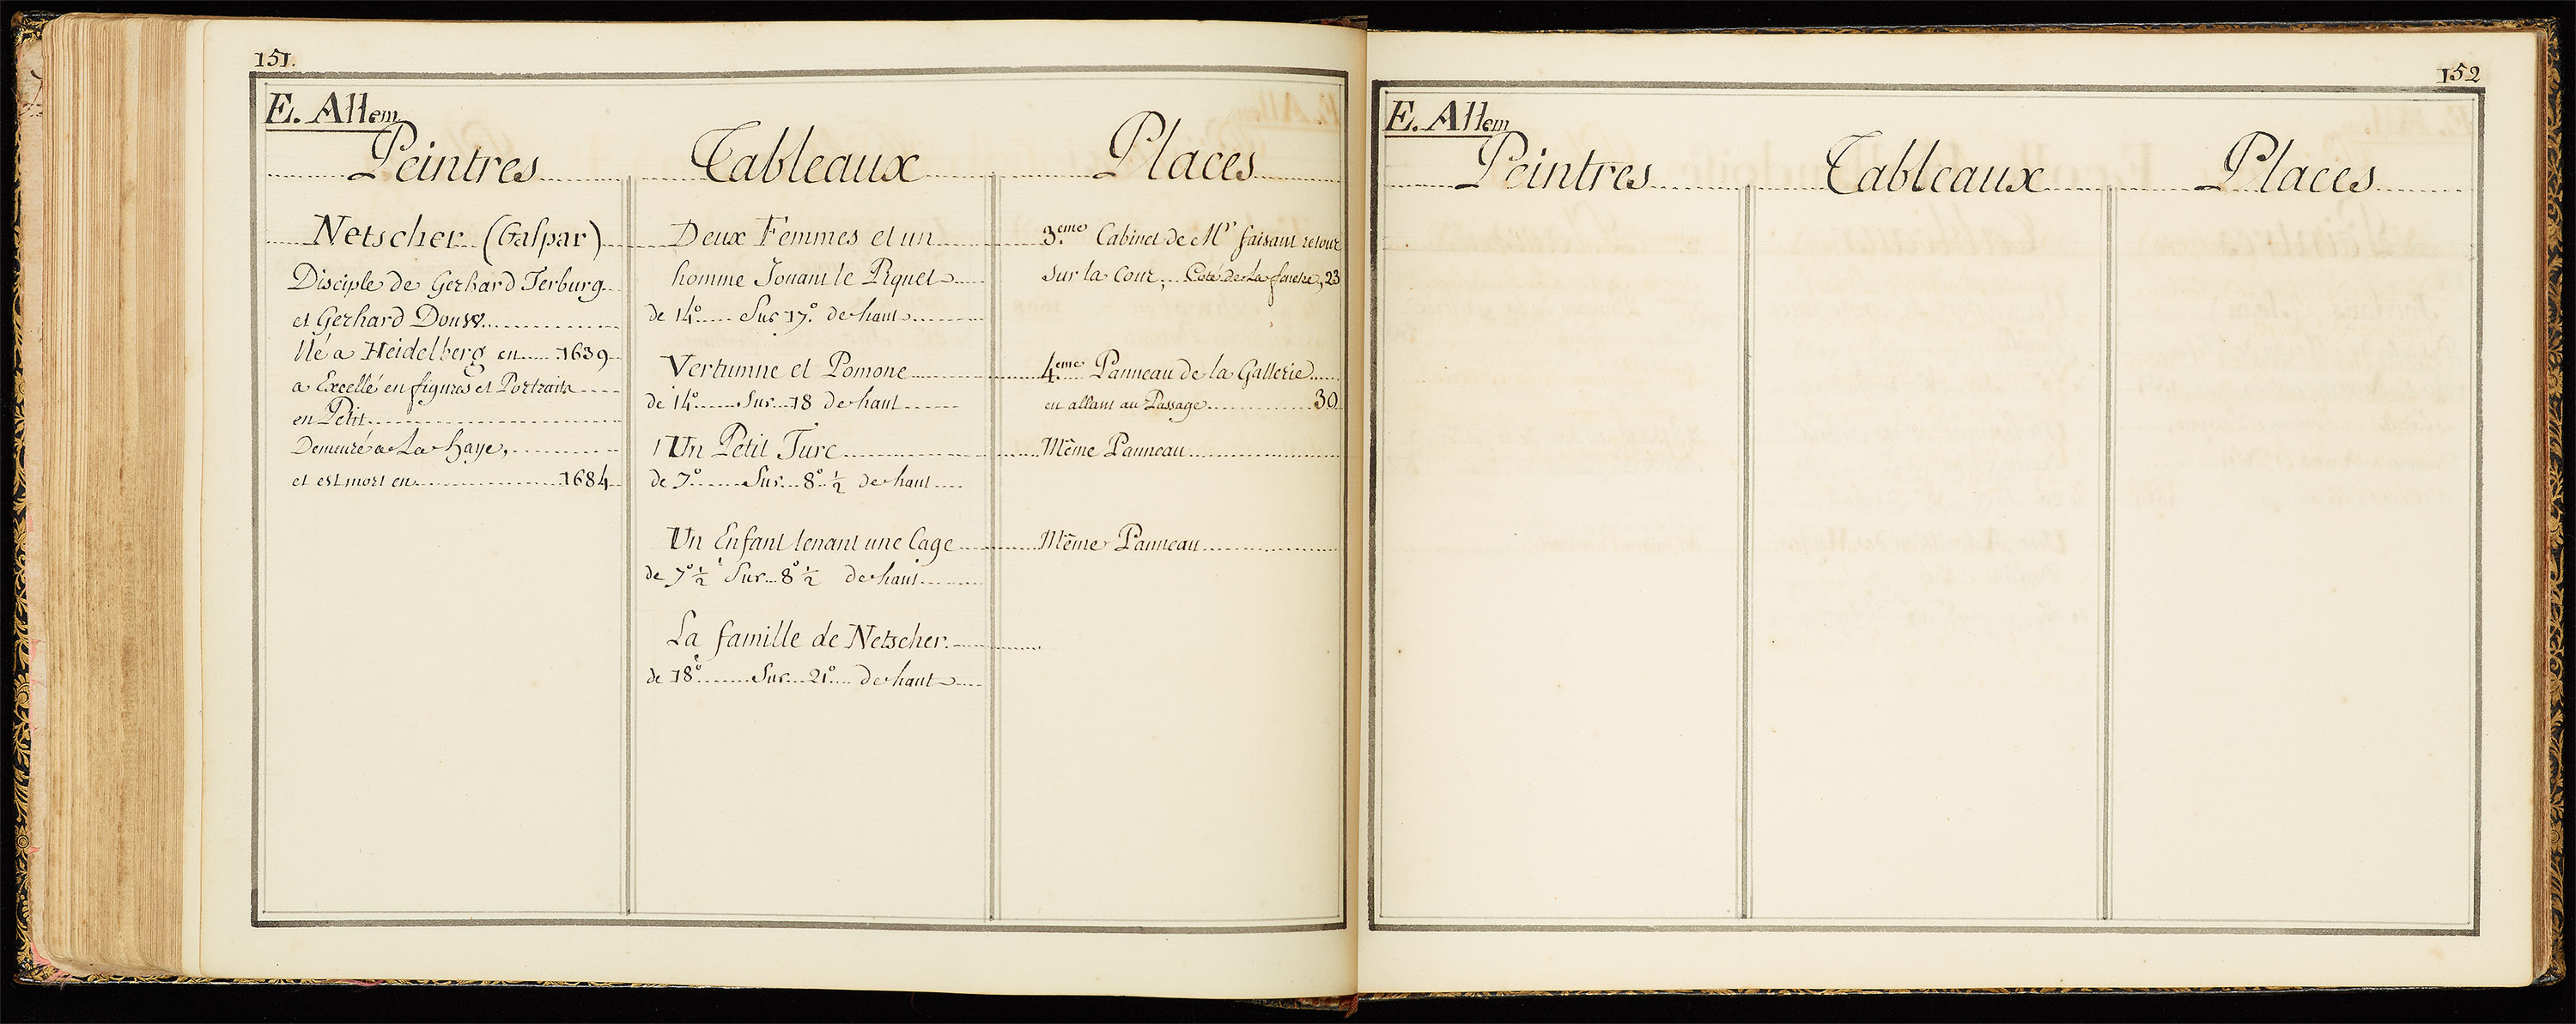 151.
E. Allem
Peintres Tableaux Places
Netscher (Gaspar)
Disciple de Gerhard Terburg
et Gerhard Douw
Né a Heidelberg en 1639
a Excellé en figures et Portraits
en Petit
Demeuré a La haye,
et est mort en 1684
Deux Femmes et un
homme Jouant le Piquet
de 14° Sur 17° de haut
Vertumne et Pomone
de 14° Sur 18 de haut
1 Un Petit Turc
de 7° Sur 8° ½ de haut
Un Enfant tenant une Cage
de 7° ½ Sur 8° ½ de haut
La famille de Netscher
de 18° Sur 21° de haut
3.eme Cabinet de Mr faisant retour
Sur la Cour, Coté de La fenetre, 23
4.eme Panneau de la Gallerie
en allant au Passage 30
Même Panneau
Même Panneau
152
E. Allem
Peintres Tableaux Places